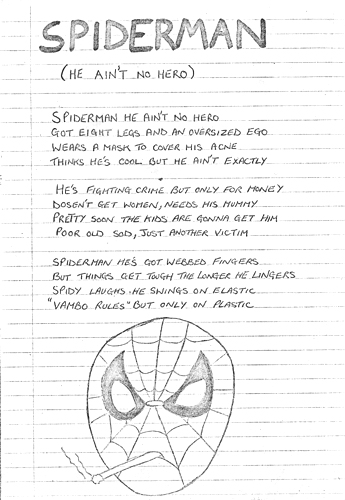 SPIDERMAN
(HE AIN'T NO HERO)
SPIDERMAN HE AIN'T NO HERO
GOT EIGHT LEGS AND AN OVERSIZED EGO
WEARS A MASK TO COVER HIS ACNE
THINKS HE'S COOL BUT HE AIN'T EXACTLY
HE'S FIGHTING CRIME BUT ONLY FOR MONEY
DOSEN'T GET WOMEN, NEEDS HIS MUMMY
PRETTY SOON THE KIDS ARE GONNA GET HIM
POOR OLD SOD, JUST ANOTHER VICTIM
SPIDERMAN HE'S GOT WEBBED FINGERS
BUT THINGS GET TOUGH THE LONGER HE LINGERS
SPIDY LAUGHS. HE SWINGS ON ELASTIC
"VAMBO RULES" BUT ONLY ON PLASTIC